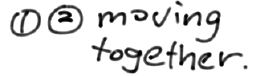 ①② moving
together.